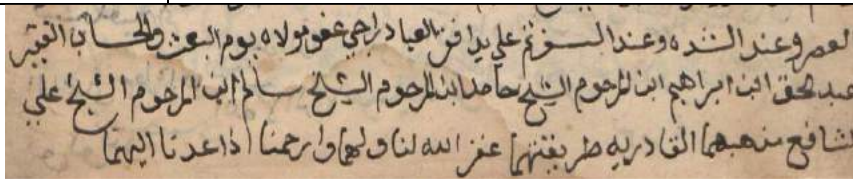 العمر وعند الشده وعند السفر تم علي يد افقر العباد راجي عفو مولاه يوم البعث والحساب الفقير
عبد الحق ابن ابراهيم ابن المرحوم الشيخ حامد ابن المرحوم الشيخ سالم ابن المرحوم الشيخ علي
الشافعي مذهبهما القادريه طريقتهما غفر الله لنا ولهما وارحمنا اذا عدنا اليهما